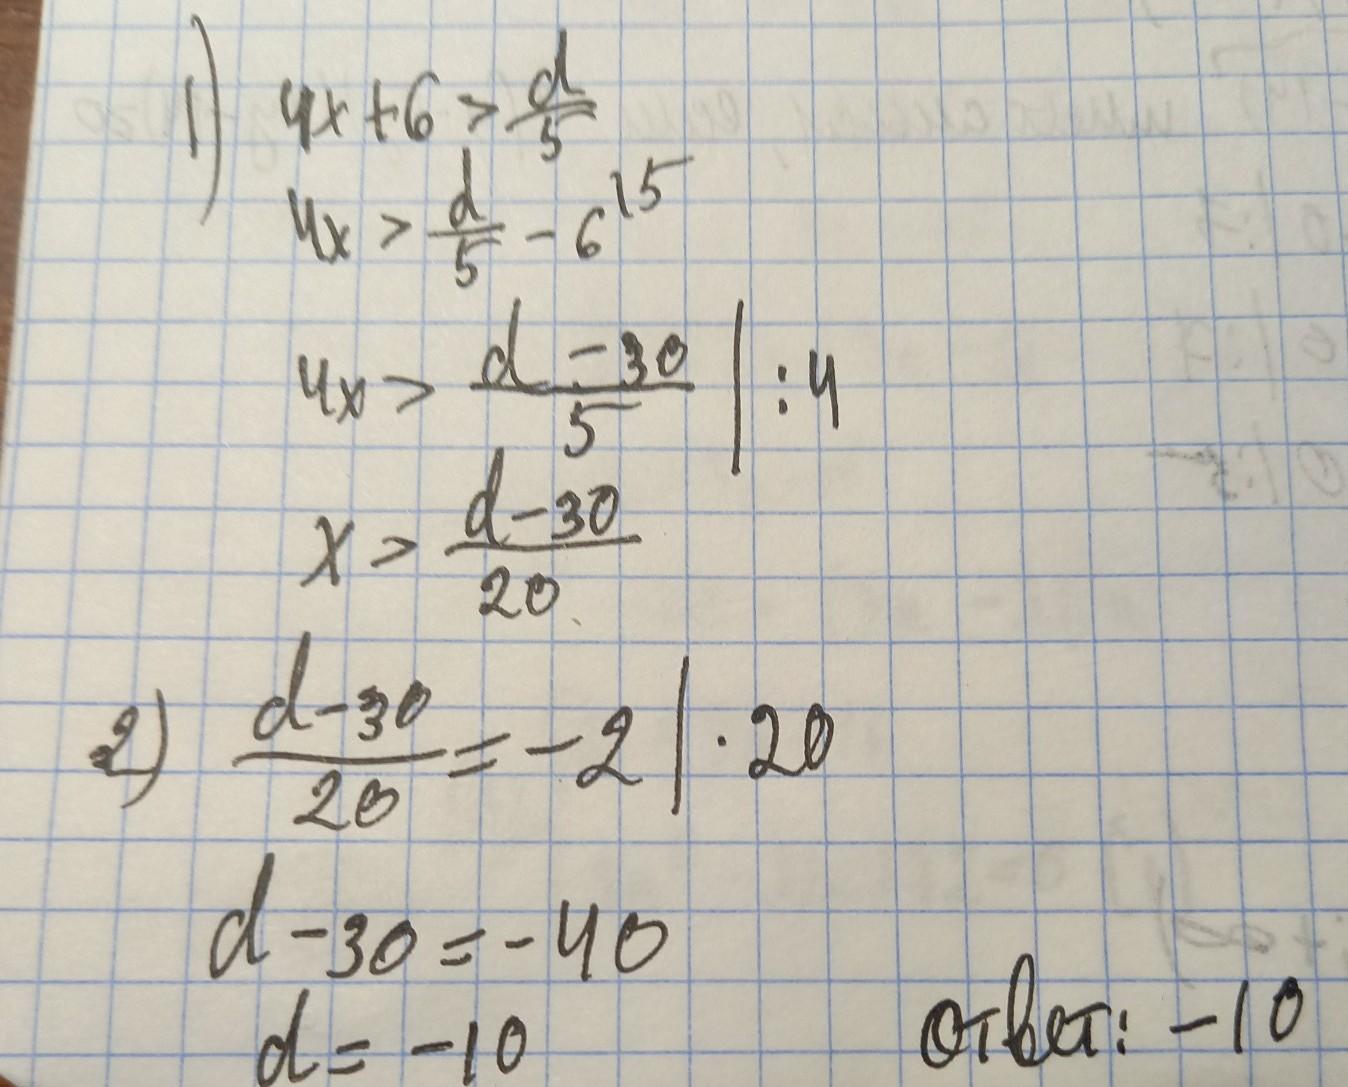 1) 4x+6 > d/5
4x > d/5 - 6^15
4x > (d-30)/5 | :4
x > (d-30)/20
2) (d-30)/20 = -2 | · 20
d-30=-40
d= -10
ответ: -10